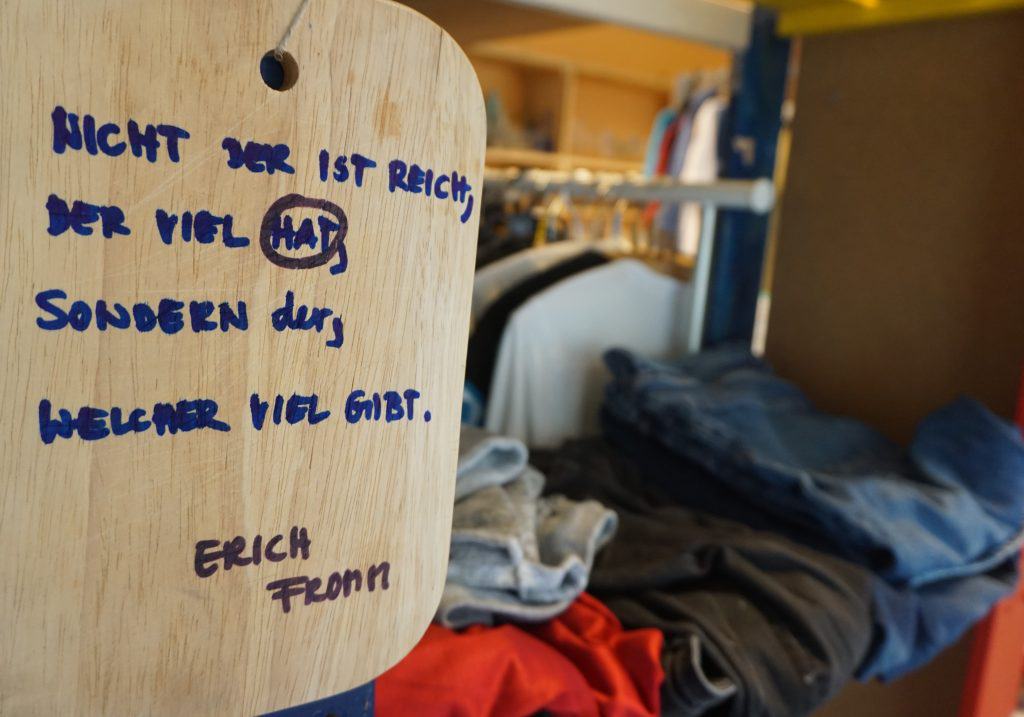 NICHT DER IST REICH,
DER VIEL HAT,
SONDERN der,
WELCHER VIEL GIBT.
ERICH
FROMM